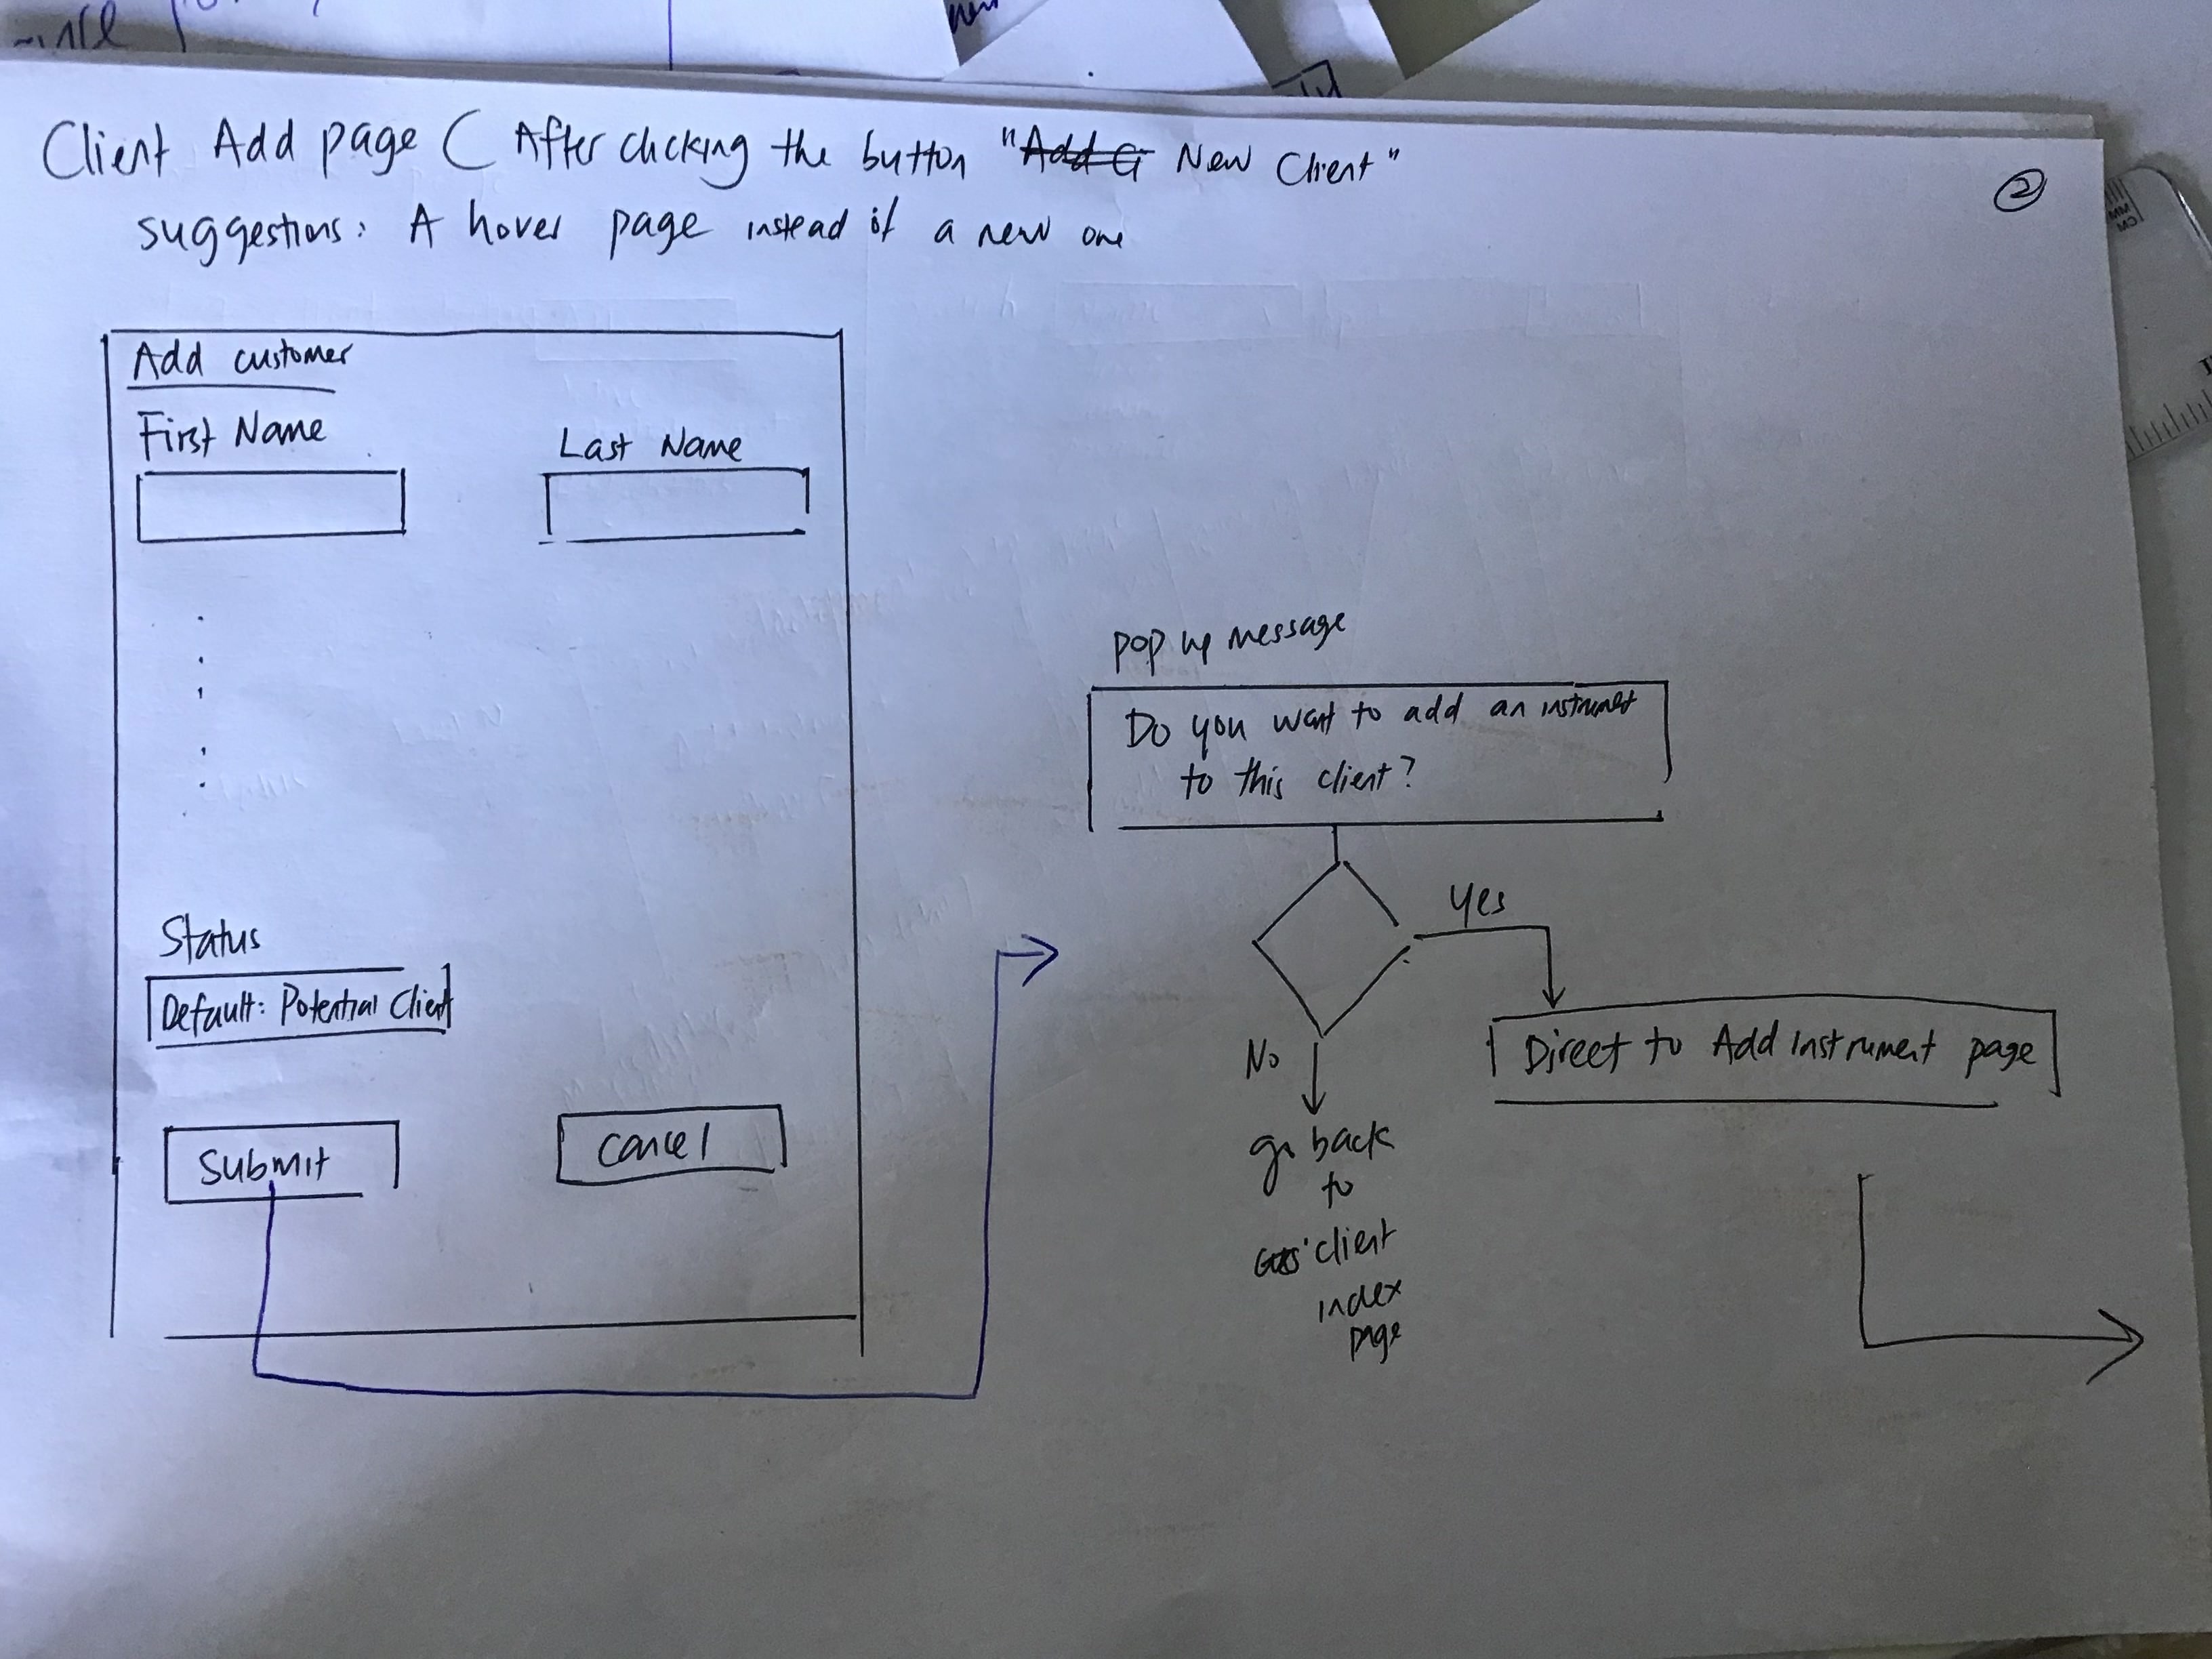 new
Client Add page ( After clicking the button "Add Cl New Client"
2
suggestions: A hover page instead of a new one
Add customer
First Name
Last Name
Status
Default: Potential Client
Submit
Cancel
Pop up message
Do you want to add an instrument
to this client?
Yes
No
Direct to Add Instrument page
go back
to
client
index
page
MM
CM